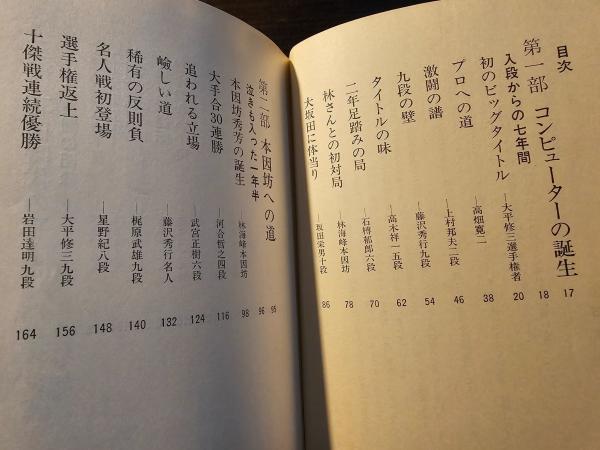 目次
第一部 コンピューターの誕生 17
入段からの七年間 18
初のビッグタイトル──大平修三選手権者 20
プロへの道──高畑寛二 38
激闘の譜──上村邦夫二段 46
九段の壁──藤沢秀行九段 54
タイトルの味──高木祥一五段 62
二年足踏みの局──石榑郁郎六段 70
林さんとの初対局──林海峰本因坊 78
大坂田に体当り──坂田栄男十段 86
第二部 本因坊への道 95
泣きも入った一年半 96
本因坊秀芳の誕生──林海峰本因坊 98
大手合30連勝──河合哲之四段 116
追われる立場──武宮正樹六段 124
嶮しい道──藤沢秀行名人 132
稀有の反則負──梶原武雄九段 140
名人戦初登場──星野紀八段 148
選手権返上──大平修三九段 156
十傑戦連続優勝──岩田達明九段 164